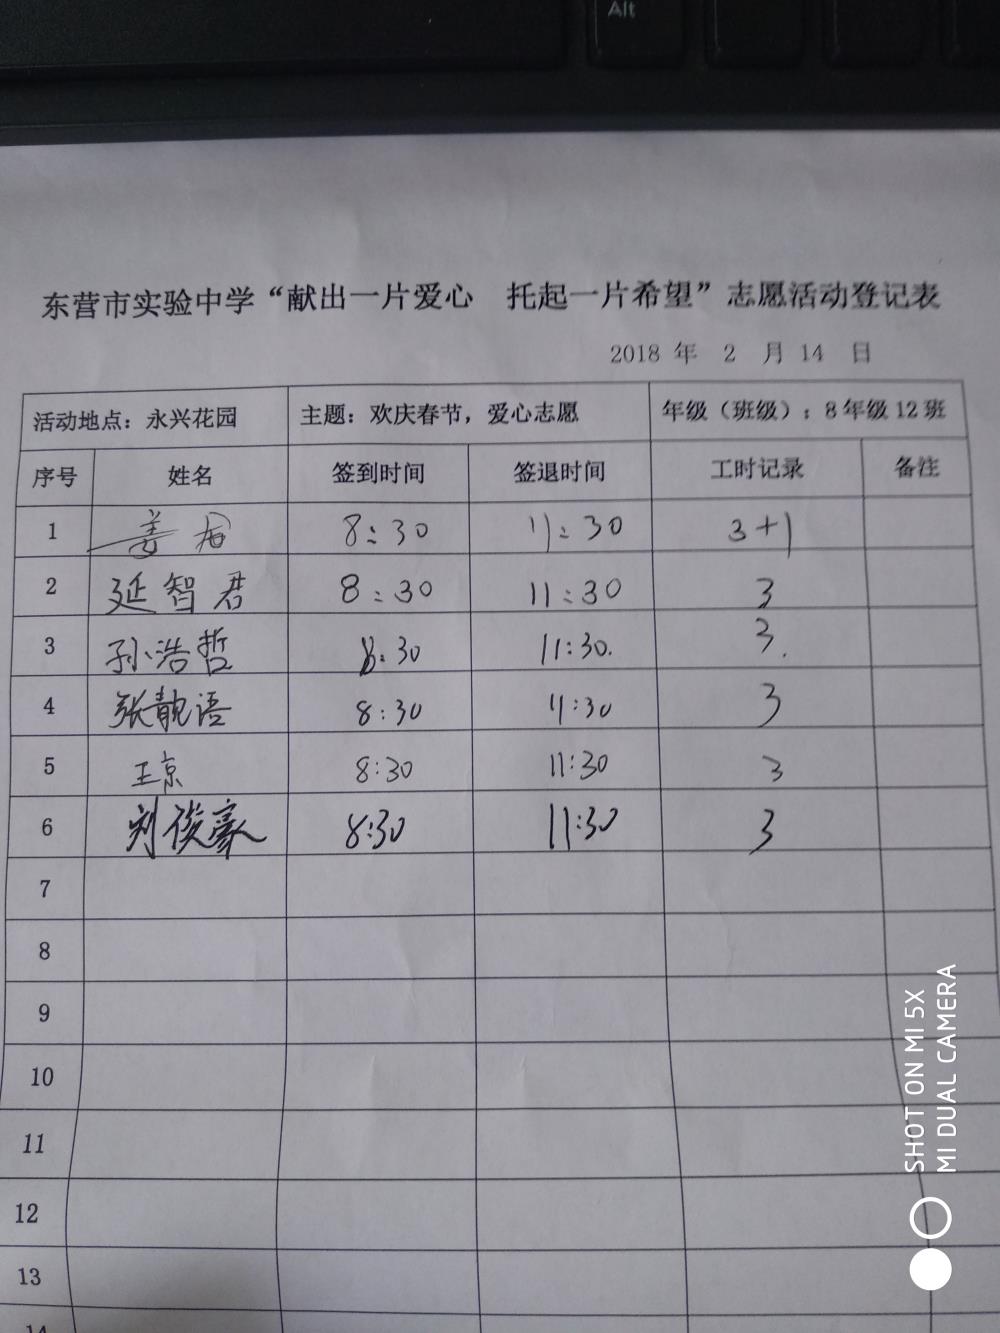 Alt
东营市实验中学“献出一片爱心 托起一片希望”志愿活动登记表
2018 年 2 月 14 日
活动地点：永兴花园 主题：欢庆春节，爱心志愿 年级（班级）：8年级12班
序号 姓名 签到时间 签退时间 工时记录 备注
1 姜 8:30 11:30 3+1
2 延智君 8:30 11:30 3
3 孙浩哲 8:30 11:30. 3.
4 张靓语 8:30 11:30 3
5 王京 8:30 11:30 3
6 刘俊豪 8:30 11:30 3
7
8
9
10
11
12
13
14
SHOT ON MI 5X
MI DUAL CAMERA